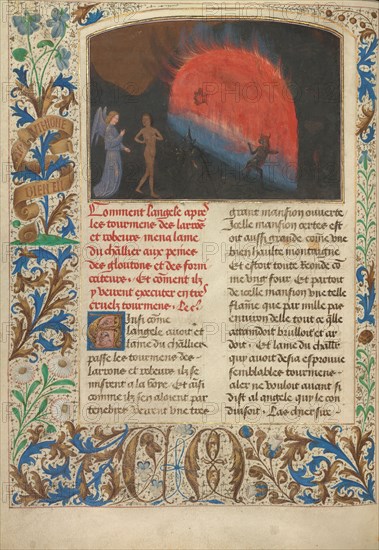 Comment langele apres
les tourmens des larrons
et robeurs mena lame
du chãllier aux peines
des gloutons et des forni
cateurs. Et cõment ilz y
veirent executer entre
cruelz tourmens. Le
Ainsi cõme
langele auoit et
lame du chãllier
passe les tourmens des
larrons et robeurs ilz se
misrent a la voye. Et ainsi
comme ilz sen aloient par
tenebres veirent vne tres
grant mansion ouuerte
Icelle mansion certes est
oit aussi grande cõme vne
bien haulte montaigne
Et estoit toute Ronde cõ
me vng four. Et partoit
de icelle mansion vne telle
flame que par mille pas
enuiron delle tout ce quelle
attaindoit brulloit et ar
doit. Et lame du chãllier
qui auoit desia esprouue
semblables tourmens
aler ne vouloit auant si
dist al angele qui le con
duisoit.
CM